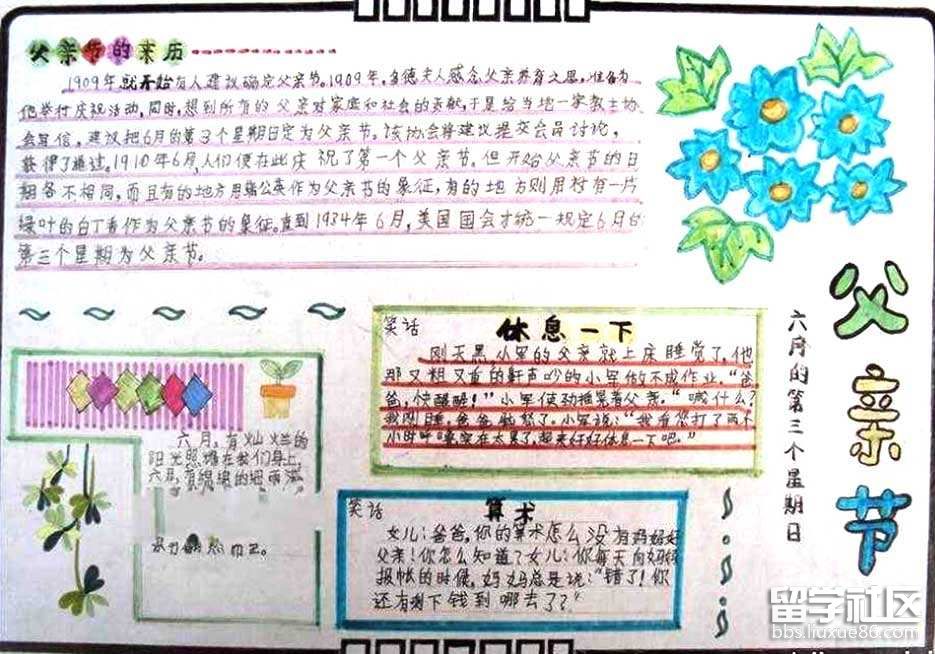 父亲节的来历
1909年就开始有人建议确定父亲节。1909年,多德夫人感念父亲养育之恩,准备为
他举行庆祝活动,同时,想到所有的父亲对家庭和社会的贡献,于是给当地一家教士协
会写信,建议把6月的第3个星期日定为父亲节。该协会将建议提交会员讨论,
获得了通过。1910年6月,人们便在此庆祝了第一个父亲节。但开始父亲节的日
期各不相同,而且有的地方用蒲公英作为父亲节的象征,有的地方则用衬有一片
绿叶的白丁香作为父亲节的象征。直到1934年6月,美国国会才统一规定6月的
第三个星期为父亲节。
父亲节
六月的第三个星期日
笑话
休息一下
刚天黑,小军的父亲就上床睡觉了,他
那又粗又重的鼾声吵的小军做不成作业。“爸
爸,快醒醒!”小军使劲摇晃着父亲。“喊什么?
我刚睡,爸爸 小军说:“我看您打了两个
小时呼噜实在太累了,起来好好休息一下吧。”
六月,有灿烂的
阳光照耀在我们身上,
六月,有绵绵的细雨
笑话
算术
女儿:爸爸,你的算术怎么没有妈妈好
父亲:你怎么知道?女儿:你每天向妈妈
报帐的时候,妈妈总是说:“错了!你
还有剩下钱到哪去了?”
留学社区
bbs.liuxue86.com